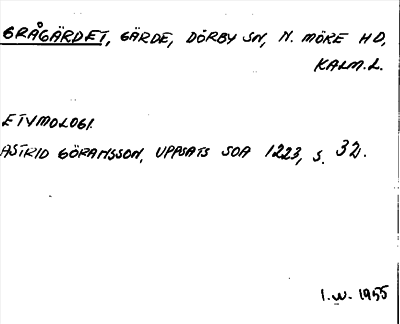 GRÅGÄRDET, GÄRDE, DÖRBY SN, N. MÖRE HD,
KALM.L.
ETYMOLOGI.
ASTRID GÖRANSSON, UPPSATS SOA 1223, S. 32.
I.W. 1955